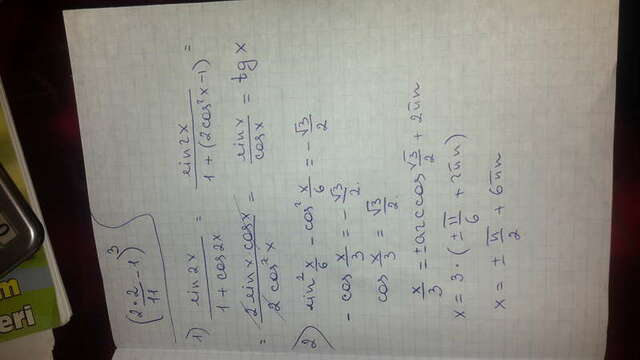 (2·2/11 - 1)^3
1) sin2x / 1 + cos2x = sin2x / 1 + (2cos²x-1) =
= 2sinx cosx / 2cos²x = sinx / cosx = tg x
2) sin² x/6 - cos² x/6 = - √3/2
- cos x/3 = - √3/2
cos x/3 = √3/2
x/3 = ± arccos √3/2 + 2πn
x = 3·(± π/6 + 2πn)
x = ± π/2 + 6πn
eri